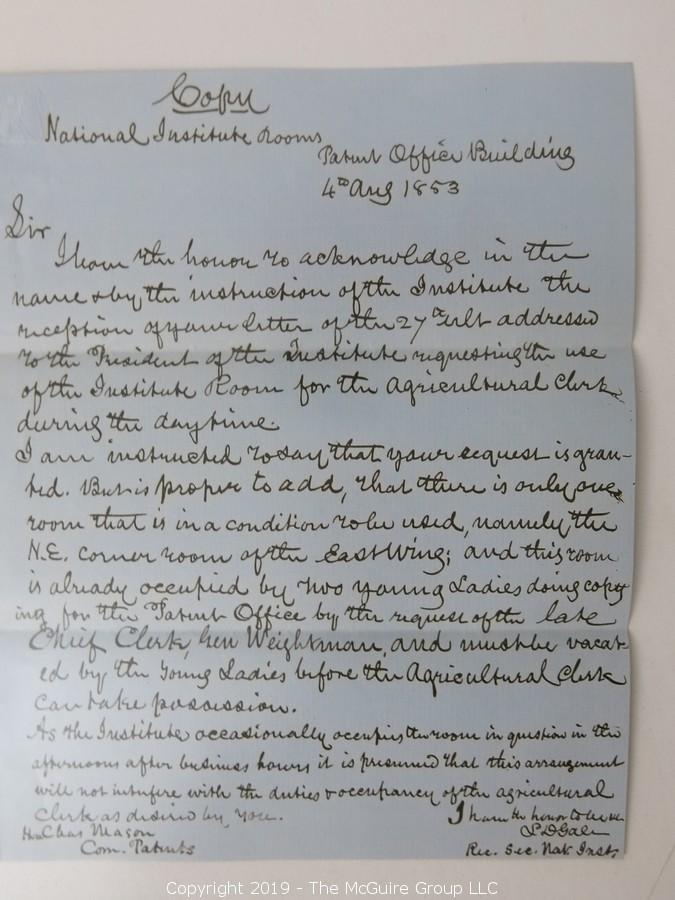 Copy
National Institute Rooms
Patent Office Building
4th Aug 1853
Sir
I have the honor to acknowledge in the
name & by the instruction of the Institute the
reception of your letter of the 27th ult addressed
to the President of the Institute requesting the use
of the Institute Room for the Agricultural Clerk
during the daytime.
I am instructed to say that your request is gran-
ted. But is proper to add, that there is only one
room that is in a condition to be used, namely the
N.E. corner room of the East Wing; and this room
is already occupied by two young Ladies doing copy
ing for the Patent Office by the request of the late
Chief Clerk, Gen Weightman, and must be vacat-
ed by the Young Ladies before the Agricultural Clerk
can take possession.
As the Institute occasionally occupies the room in question in the
afternoons after business hours it is presumed that this arrangement
will not interfere with the duties & occupancy of the agricultural
Clerk as desired by you.
I have the honor to be &c
Hon Chas Mason
L D Gale
Com. Patents
Rec. Sec. Nat. Inst.
Copyright 2019 - The McGuire Group LLC